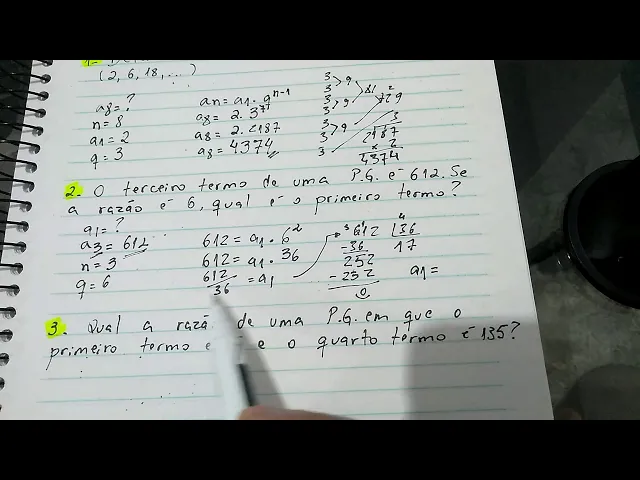 (2, 6, 18, ...)
a8 = ?
n = 8
a1 = 2
q = 3
an = a1 . q^n-1
a8 = 2 . 3^7
a8 = 2 . 2187
a8 = 4374
3 > 9
3
3 > 9
3
3 > 9
3
3
81
729
2187
x 2
4374
2. O terceiro termo de uma P.G. é 612. Se
a razão é 6, qual é o primeiro termo?
a1 = ?
a3 = 612
n = 3
q = 6
612 = a1 . 6^2
612 = a1 . 36
612/36 = a1
612 |36
-36 17
252
- 252
0
a1 =
3. Qual a de uma P.G. em que o
primeiro termo e o quarto termo é 135?